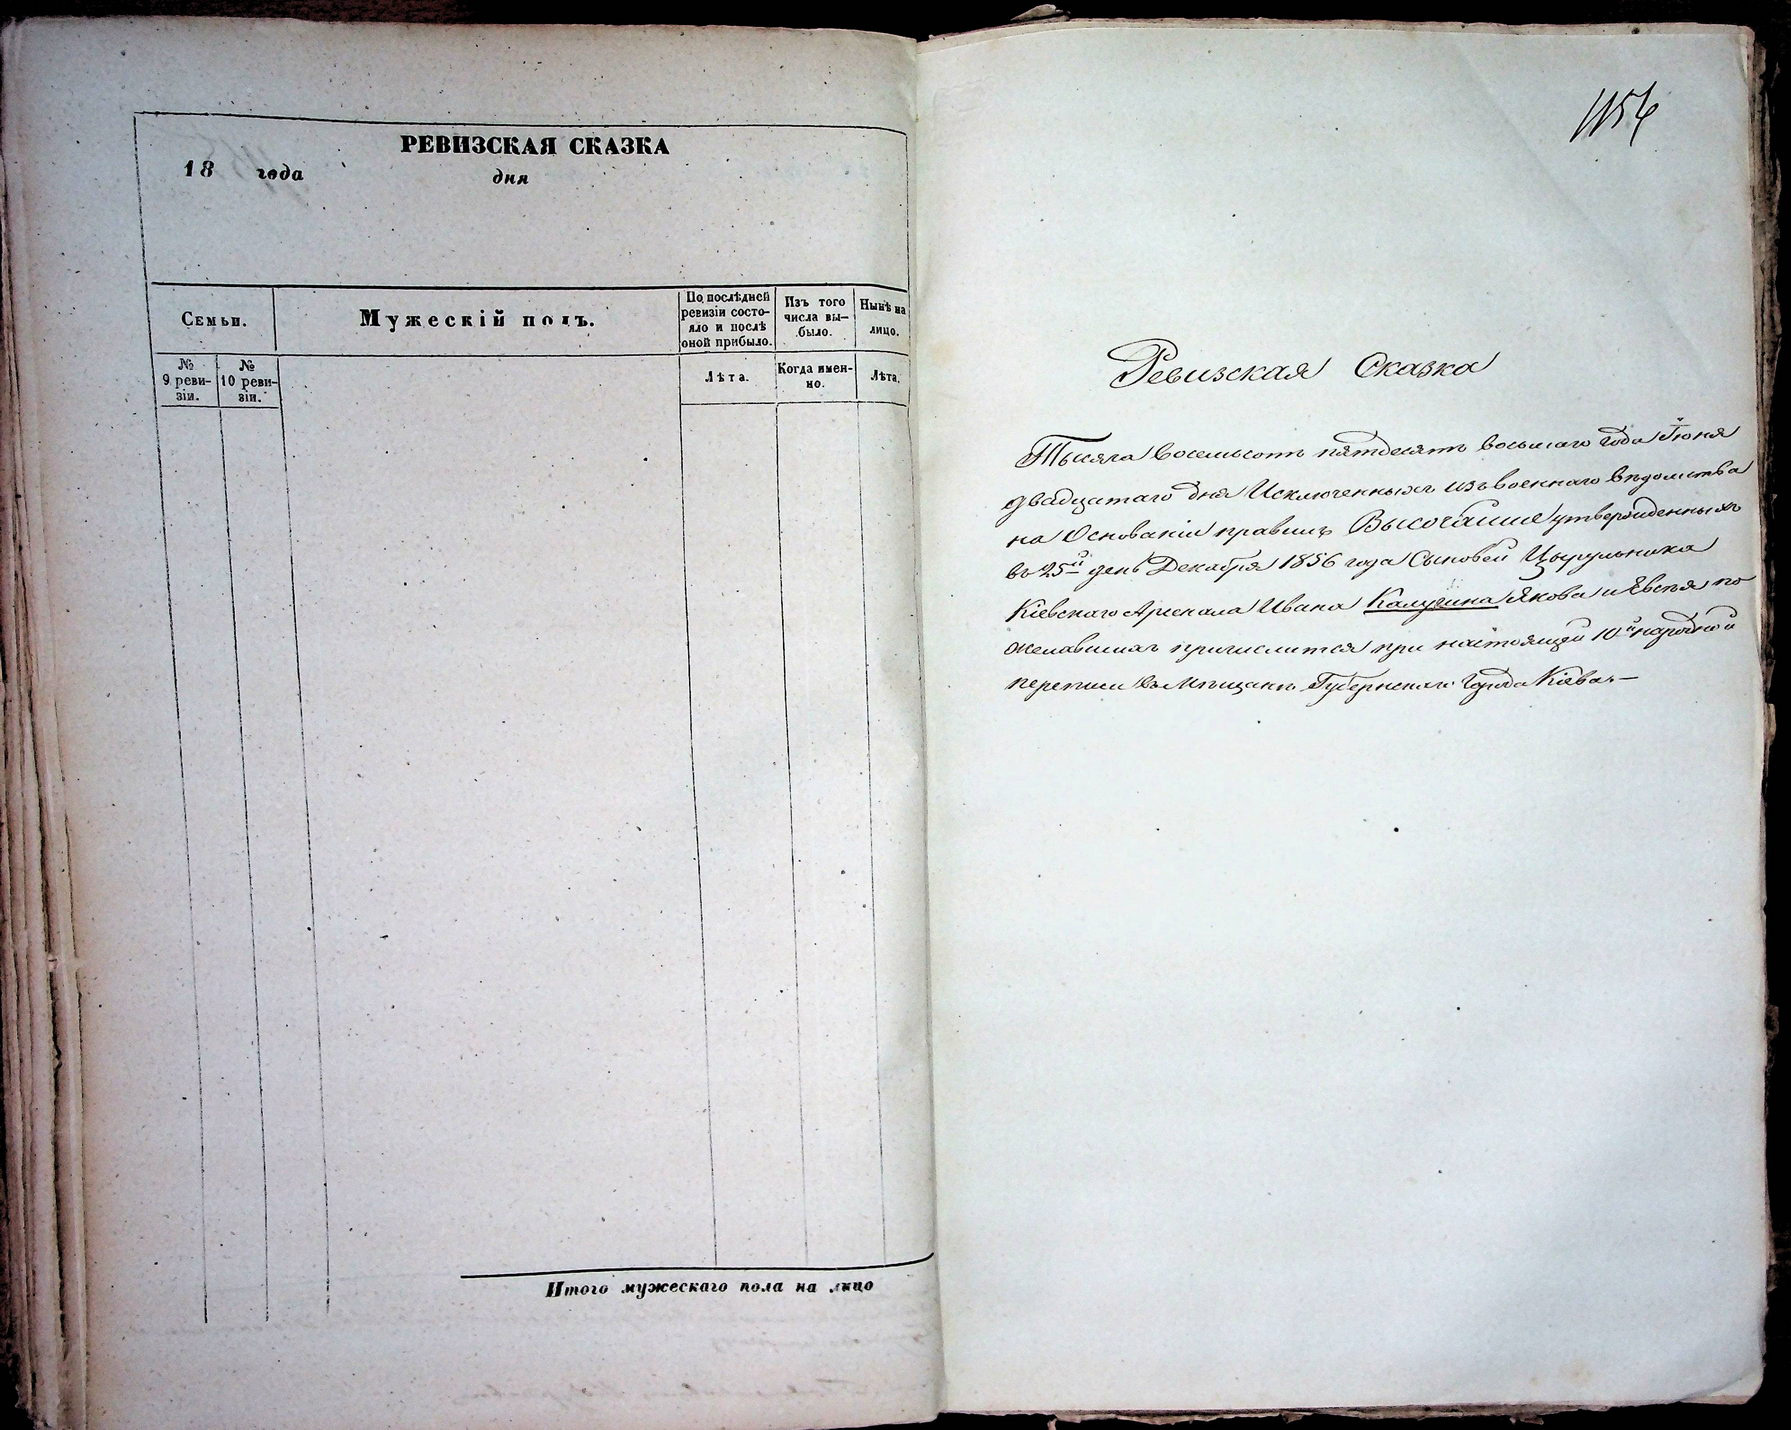 РЕВИЗСКАЯ СКАЗКА
18 года дня
Семьи.
Мужескій полъ.
По послѣдней ревизіи состояло и послѣ оной прибыло.
Изъ того числа выбыло.
Нынѣ на лицо.
№ 9 ревизіи.
№ 10 ревизіи.
Лѣта.
Когда именно.
Лѣта.
Итого мужескаго пола на лицо
Ревизская Сказка
Тысяча восемьсотъ пятдесятъ восьмаго года Іюня
двадцатаго дня Исключенныхъ изъ военнаго вѣдомства
на Основаніи правилъ Высочайше утвержденныхъ
въ 25й день Декабря 1856 года Сыновей Цырульника
Кіевскаго Арсенала Ивана Калугина Якова и Евсѣя по
желавшихъ причислится при настоящей 10й народной
переписи въ Мѣщане Губернскаго города Кіева.—